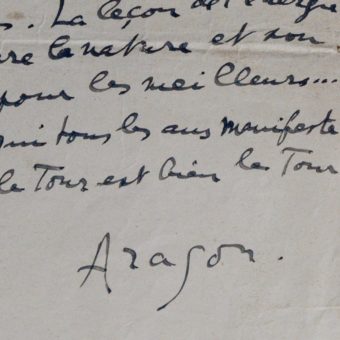 s. La leçon de l'énergie
re la nature et son
pour les meilleurs...
qui tous les ans manifeste
le Tour est bien le Tour
Aragon.